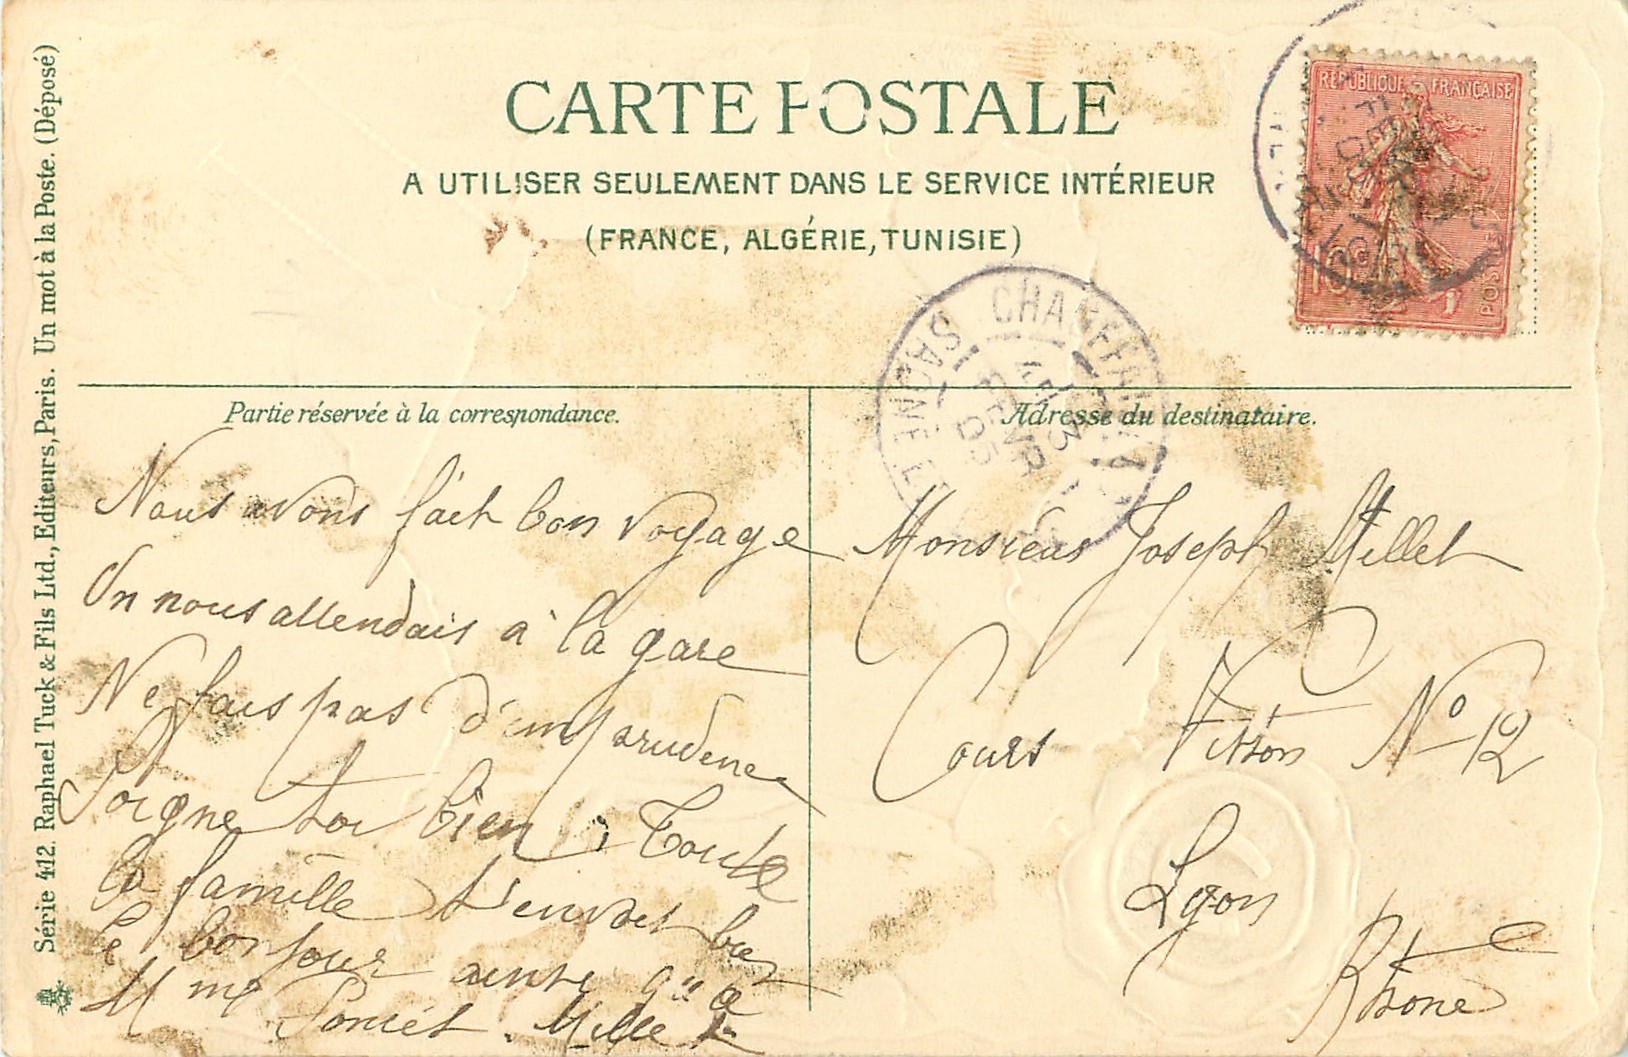 CARTE POSTALE
A UTILISER SEULEMENT DANS LE SERVICE INTÉRIEUR
(FRANCE, ALGÉRIE, TUNISIE)
RÉPUBLIQUE FRANÇAISE
POSTES
10c
SAONE ET
FEVR
05
Série 412. Raphael Tuck & Fils Ltd., Editeurs, Paris. Un mot à la Poste. (Déposé)
Partie réservée à la correspondance.
Nous avons fait bon voyage
On nous attendais à la gare
Ne fais pas d'imprudence
Soigne toi bien, Toute
la famille t'envoet bie
le bonjour ainsi q'' a
Mme Poncet. Mille
Adresse du destinataire.
Monsieur Joseph Millet
Cours Vitton No 12
Lyon
Rhone